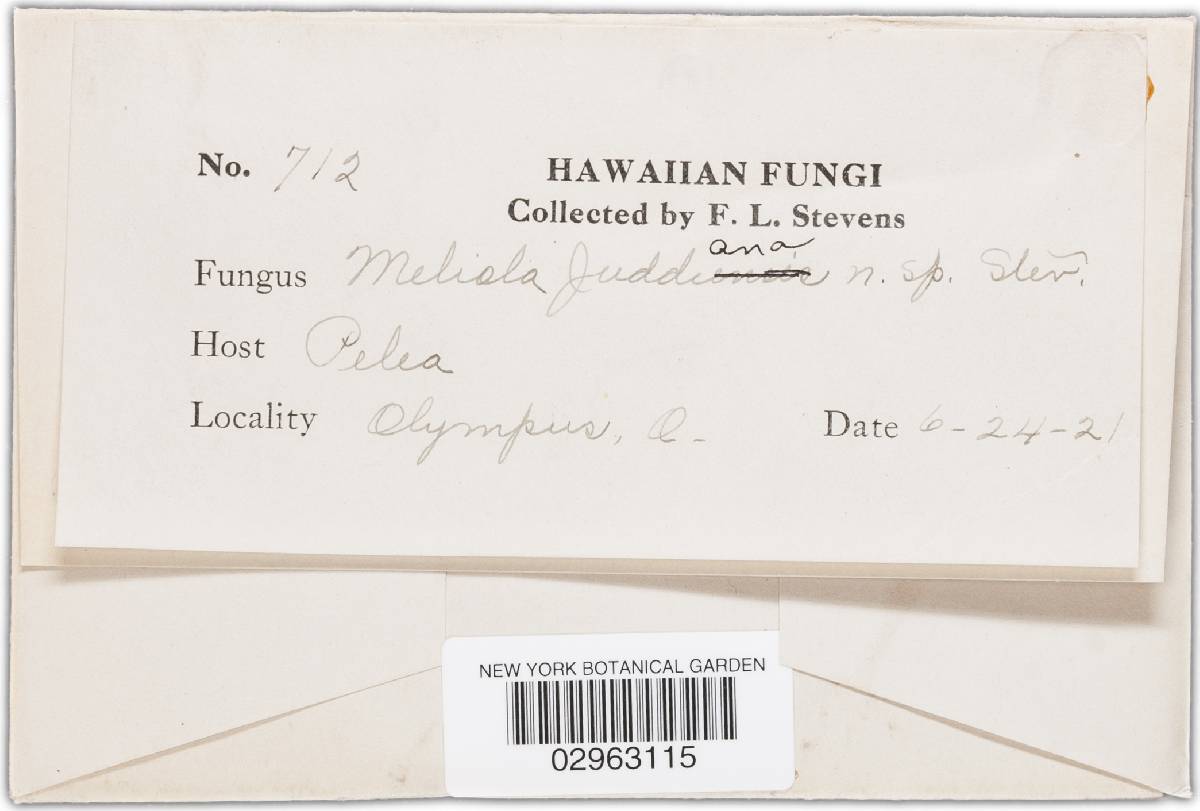 No. 712
HAWAIIAN FUNGI
Collected by F. L. Stevens
ana
Fungus Meliola Juddi n. sp. Stev.
Host Pelea
Locality Olympus, O. Date 6-24-21
NEW YORK BOTANICAL GARDEN
02963115